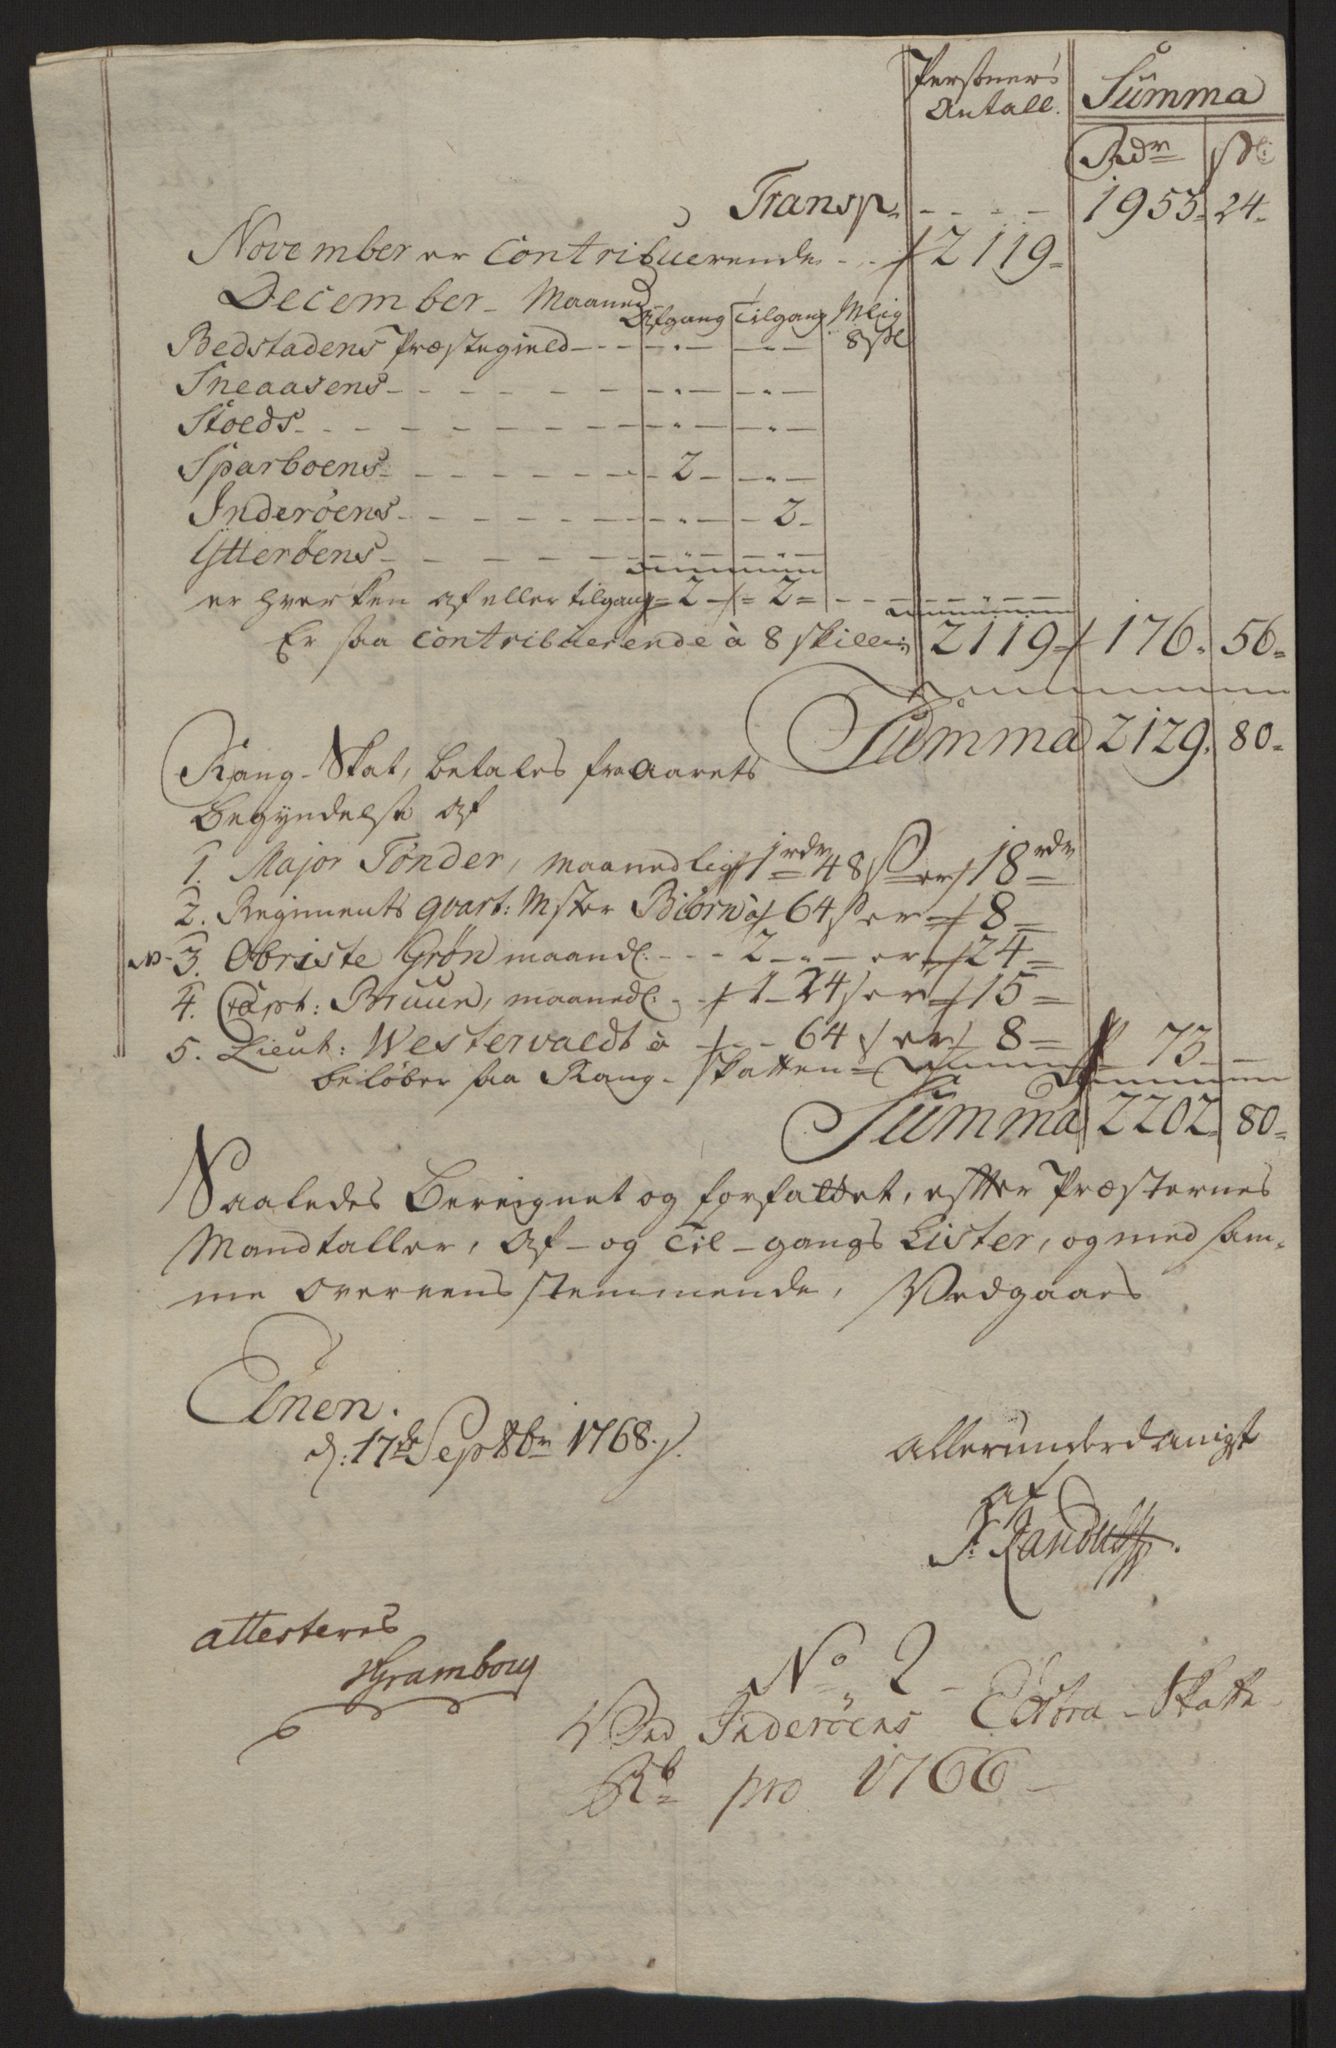 Persohners Antall. Summa
Rdr sk:
Transp. - - - - 1953. 24.
November er Contribuerende - - 2119 -
December - Maaned Afgang Tilgang Mlig
Bedstadens Præstegield - - - - - - 8 sk
Sneaasens - - - - - -
Stoeds - - - - - -
Sparboens - - - - - 2 - -
Inderöens - - - - - - 2 -
Ytteröens - - - - - -
er hverken af eller tilgang = 2 - = 2 = - - -
Er saa Contribuerende à 8 skilling 2119 = 176. 56 =
Summa 2129. 80 =
Rang - Skat, betales fra Aarets
Begyndelse af
1. Major Tönder, maanedlig 1 rdr 48 s er 18 rdr
2. Regiments qvart: Mster Biörn à 64 s er 8 =
3. Obriste Grön maanedl. - - - 2 - - er 24 =
4. Capt: Bruun, maanedl: - 1 - 24 s er 15 =
5. Lieut: Westervaldt à - - 64 s er 8 =
beløber saa Rang - Skatten = 73 -
Summa 2202. 80 =
Saaledes Bereignet og forfattet, efter Præsternes
Mandtaller, Af - og Til - gangs Lister, og med sam-
me overeensstemmende, Vedgaaes
Elnen.
d: 17de Septbr 1768.
Allerunderdanigst
af
attesteres
No 2 -
Ved Inderöens Extra - Skatte
Rb pro 1766 -